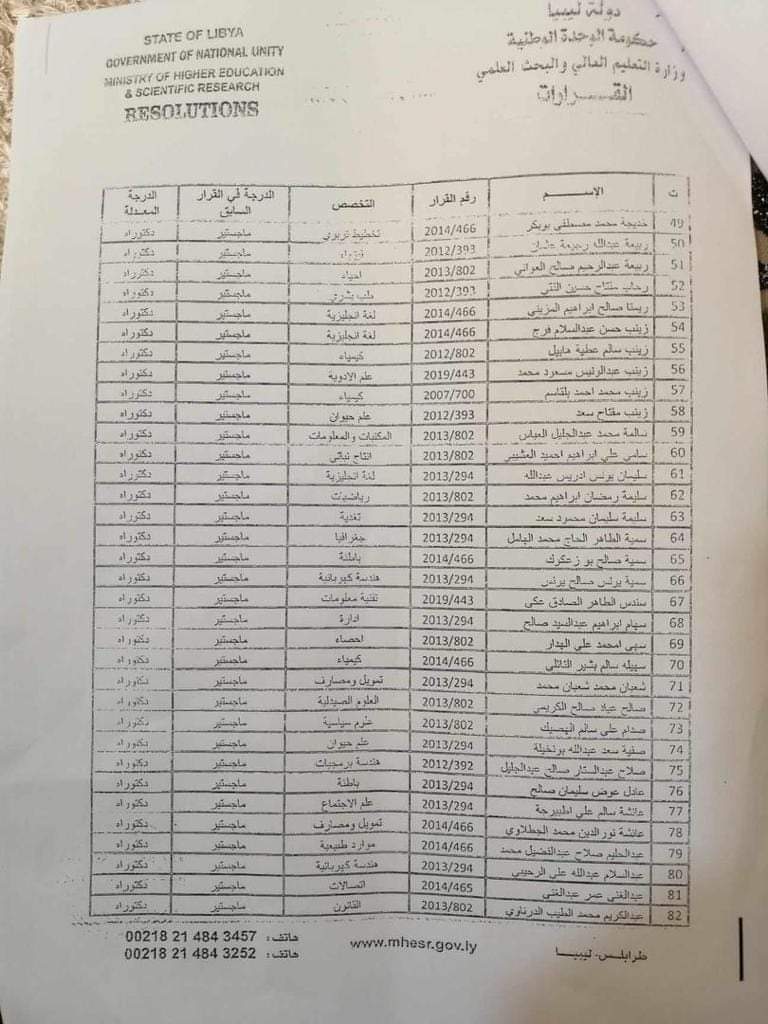 STATE OF LIBYA
GOVERNMENT OF NATIONAL UNITY
MINISTRY OF HIGHER EDUCATION
& SCIENTIFIC RESEARCH
RESOLUTIONS
دولة ليبيا
حكومة الوحدة الوطنية
وزارة التعليم العالي والبحث العلمي
القــــرارات
ت الإســـم رقم القرار التخصص الدرجة في القرار السابق الدرجة المعدلة
49 خديجة محمد مصطفى بوبكر 2014/466 تخطيط تربوي ماجستير دكتوراه
50 ربيعة عبدالله رحومة 2012/393 ماجستير دكتوراه
51 ربيعة عبدالرحيم صالح العوامي 2013/802 احياء ماجستير دكتوراه
52 رحاب مفتاح حسين 2012/393 طب بشري ماجستير دكتوراه
53 ريما صالح ابراهيم المزيني 2014/466 لغة انجليزية ماجستير دكتوراه
54 زينب حسن عبدالسلام فرج 2014/466 لغة انجليزية ماجستير دكتوراه
55 زينب سالم عطية هابيل 2012/802 كيمياء ماجستير دكتوراه
56 زينب عبدالونيس مسعود محمد 2019/443 علم الادوية ماجستير دكتوراه
57 زينب محمد احمد بلقاسم 2007/700 كيمياء ماجستير دكتوراه
58 زينب مفتاح سعد 2012/393 علم حيوان ماجستير دكتوراه
59 سالمة محمد عبدالجليل العباس 2013/802 المكتبات والمعلومات ماجستير دكتوراه
60 سامي علي ابراهيم احميد العشيبي 2013/802 انتاج نباتي ماجستير دكتوراه
61 سليمان يونس ادريس عبدالله 2013/294 لغة انجليزية ماجستير دكتوراه
62 سليمة رمضان ابراهيم محمد 2013/802 رياضيات ماجستير دكتوراه
63 سليمة سليمان محمود سعد 2013/294 تغذية ماجستير دكتوراه
64 سمية الطاهر الحاج محمد الهامل 2013/294 جغرافيا ماجستير دكتوراه
65 سمية صالح بو زعكوك 2014/466 باطنة ماجستير دكتوراه
66 سمية يونس صالح يونس 2013/294 هندسة كهربائية ماجستير دكتوراه
67 سندس الطاهر الصادق عكي 2019/443 تقنية معلومات ماجستير دكتوراه
68 سهام ابراهيم عبدالسيد صالح 2013/294 ادارة ماجستير دكتوراه
69 سهى امحمد علي الهدار 2013/802 احصاء ماجستير دكتوراه
70 سهيله سالم بشير 2014/466 كيمياء ماجستير دكتوراه
71 شعبان محمد شعبان محمد 2013/294 تمويل ومصارف ماجستير دكتوراه
72 صالح عياد صالح الكريمي 2013/802 العلوم الصيدلية ماجستير دكتوراه
73 صدام علي سالم 2013/802 علوم سياسية ماجستير دكتوراه
74 صفية سعد عبدالله بونخيلة 2013/294 علم حيوان ماجستير دكتوراه
75 صلاح عبدالستار صالح عبدالجليل 2012/392 هندسة برمجيات ماجستير دكتوراه
76 عادل عوض سليمان صالح 2013/294 باطنة ماجستير دكتوراه
77 عائشة سالم علي اطبيرجة 2013/294 علم الاجتماع ماجستير دكتوراه
78 عائشة نور الدين محمد الجطلاوي 2014/466 تمويل ومصارف ماجستير دكتوراه
79 عبدالحليم صلاح عبدالفضيل محمد 2014/466 موارد طبيعية ماجستير دكتوراه
80 عبدالسلام عبدالله علي الرحيبي 2013/294 هندسة كهربائية ماجستير دكتوراه
81 عبدالغني عمر عبدالغني 2014/465 اتصالات ماجستير دكتوراه
82 عبدالكريم محمد الطيب الدرناوي 2013/802 القانون ماجستير دكتوراه
طرابلس- ليبيـــا www.mhesr.gov.ly هاتف: 00218 21 484 3457
هاتف: 00218 21 484 3252